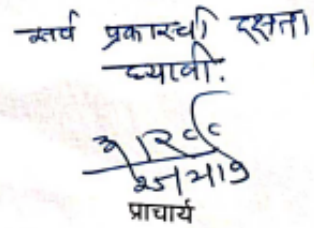 सर्व प्रकारची दक्षता
घ्यावी.
प्राचार्य